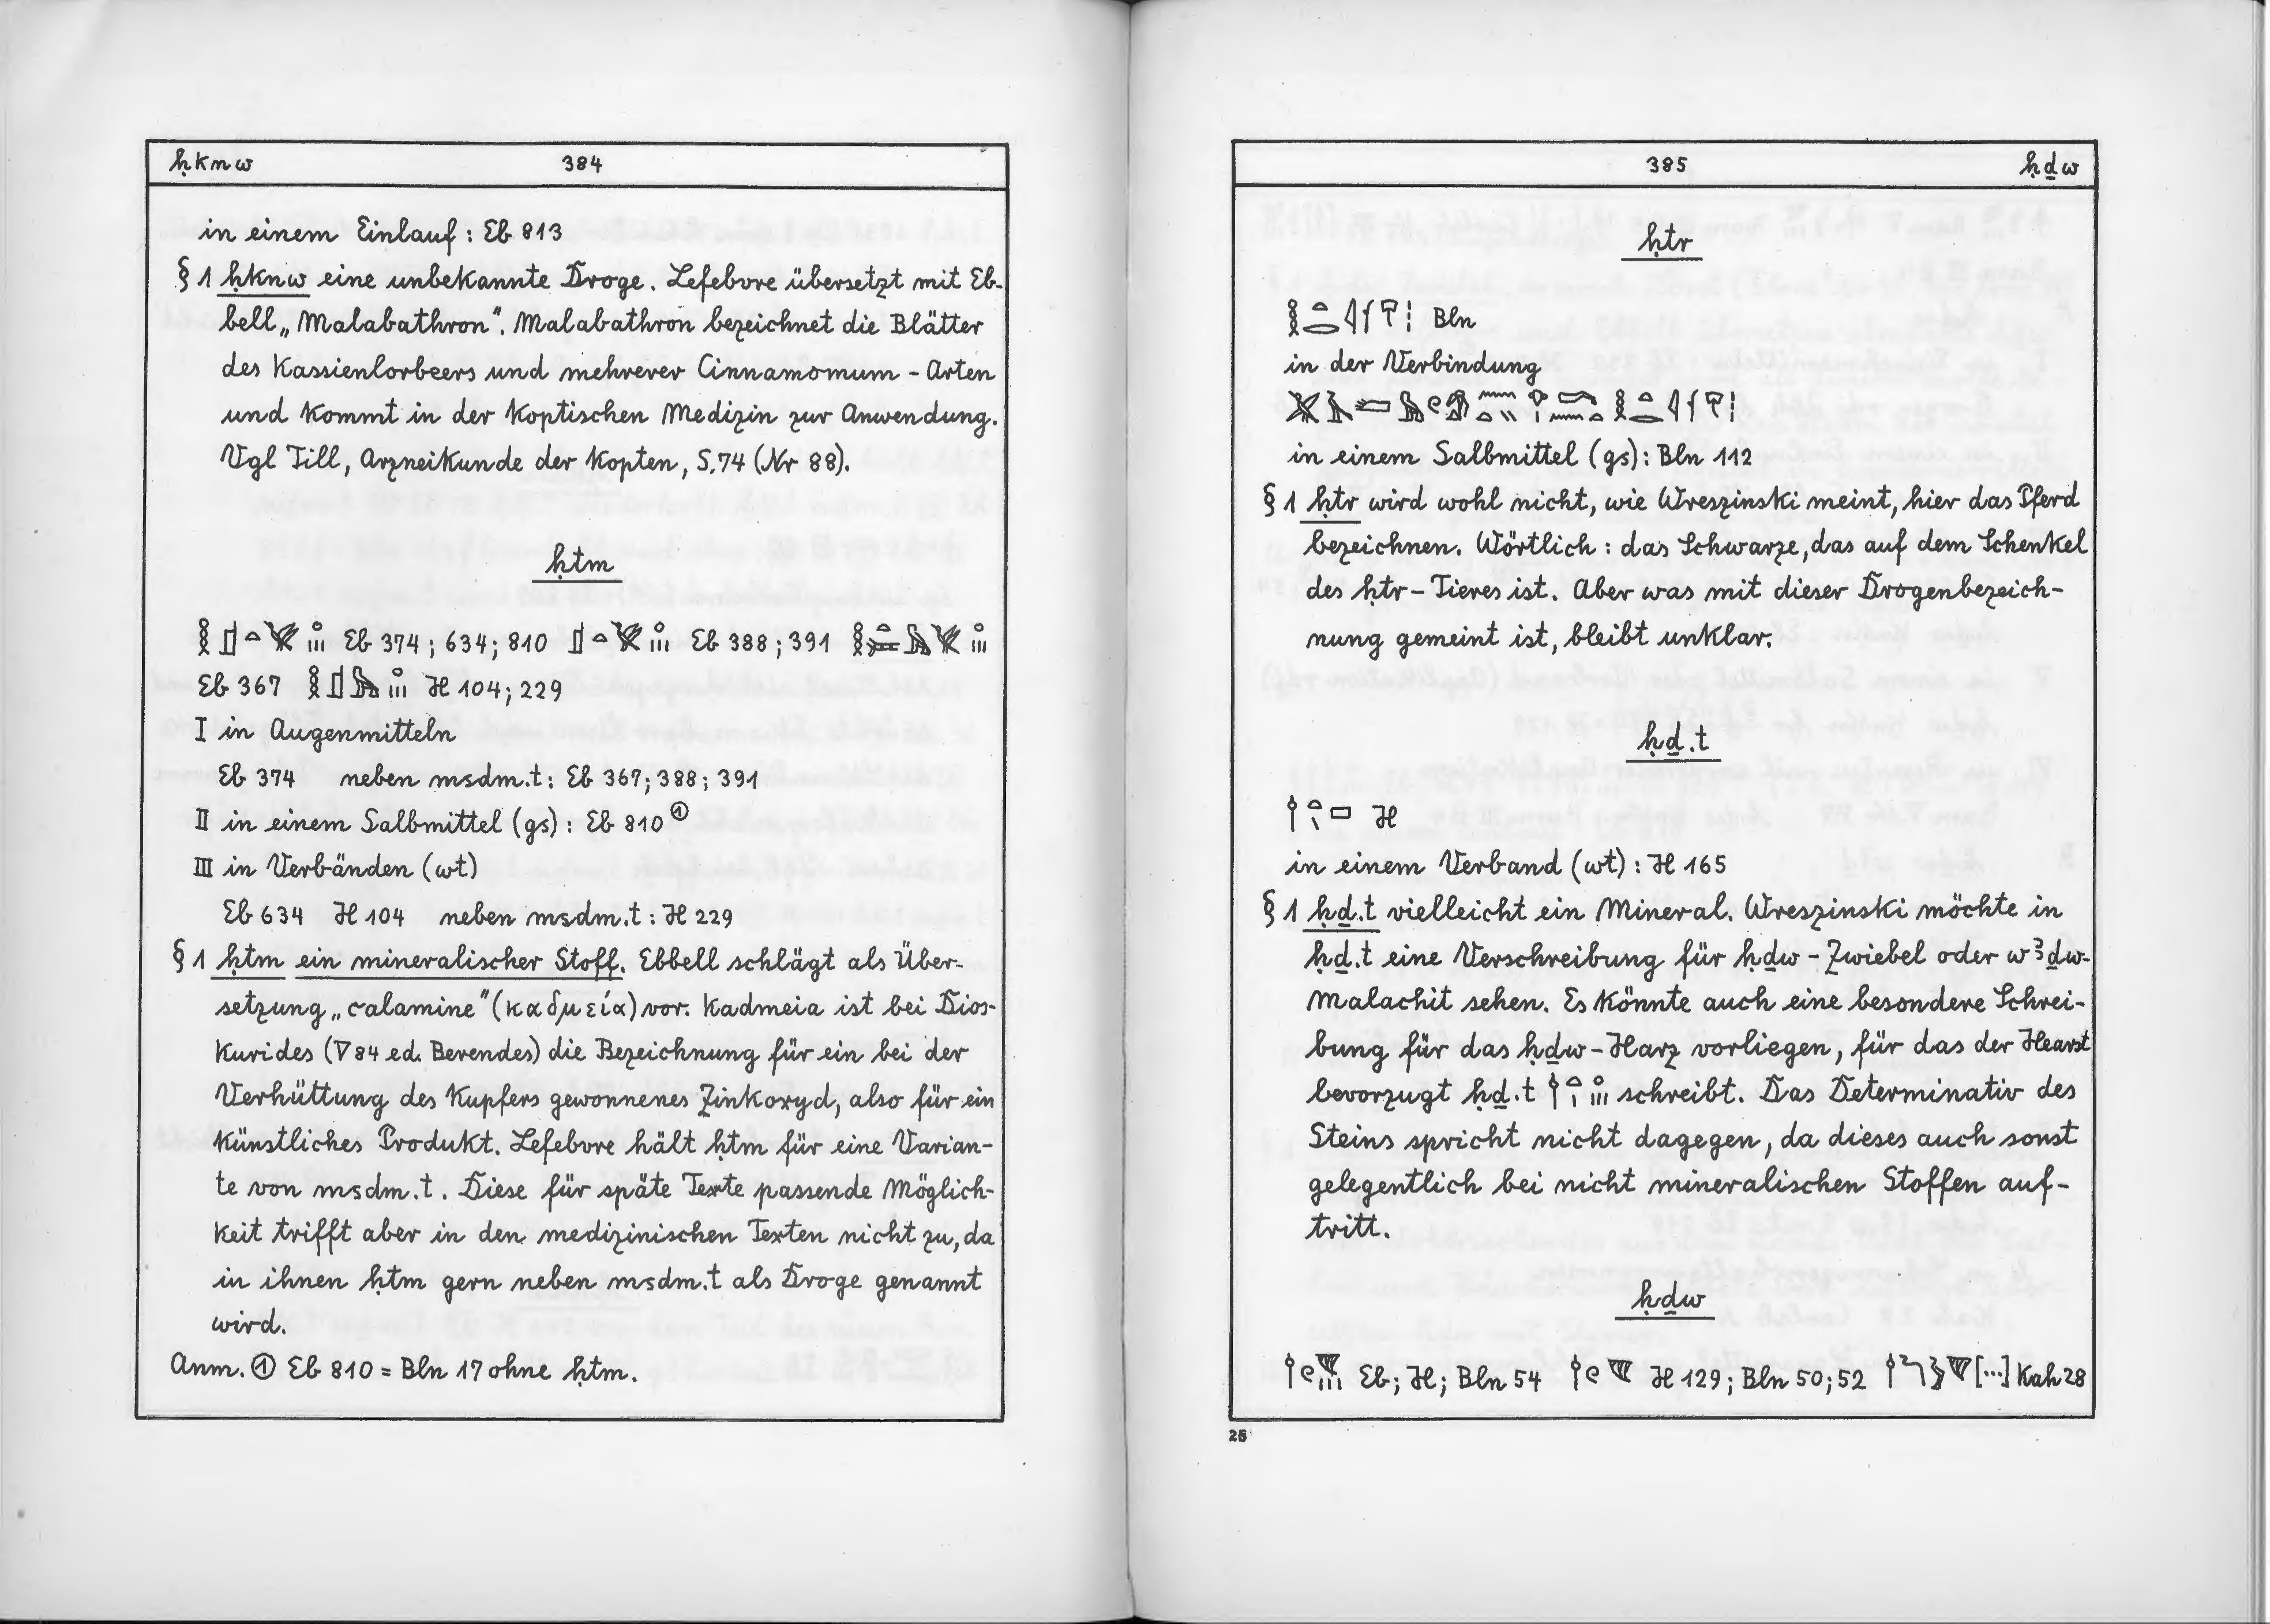 ḥknw 384
in einem Einlauf: Eb 813
§ 1 ḥknw eine unbekannte Droge. Lefebvre übersetzt mit Eb-
bell „Malabathron“. Malabathron bezeichnet die Blätter
des Kassienlorbeers und mehrerer Cinnamomum-Arten
und kommt in der koptischen Medizin zur Anwendung.
Vgl Till, Arzneikunde der Kopten, S.74 (Nr 88).
ḥtm
Eb 374; 634; 810 Eb 388; 391
Eb 367 H 104; 229
I in Augenmitteln
Eb 374 neben msdm.t: Eb 367; 388; 391
II in einem Salbmittel (gs): Eb 810 ①
III in Verbänden (wt)
Eb 634 H 104 neben msdm.t: H 229
§ 1 ḥtm ein mineralischer Stoff. Ebbell schlägt als Über-
setzung „calamine“ (καδμεία) vor. Kadmeia ist bei Dios-
kurides (V 84 ed. Berendes) die Bezeichnung für ein bei der
Verhüttung des Kupfers gewonnenes Zinkoxyd, also für ein
künstliches Produkt. Lefebvre hält ḥtm für eine Varian-
te von msdm.t. Diese für späte Texte passende Möglich-
keit trifft aber in den medizinischen Texten nicht zu, da
in ihnen ḥtm gern neben msdm.t als Droge genannt
wird.
Anm. ① Eb 810 = Bln 17 ohne ḥtm.
385 ḥḏw
ḥtr
Bln
in der Verbindung
in einem Salbmittel (gs): Bln 112
§ 1 ḥtr wird wohl nicht, wie Wreszinski meint, hier das Pferd
bezeichnen. Wörtlich: das Schwarze, das auf dem Schenkel
des ḥtr-Tieres ist. Aber was mit dieser Drogenbezeich-
nung gemeint ist, bleibt unklar.
ḥḏ.t
H
in einem Verband (wt): H 165
§ 1 ḥḏ.t vielleicht ein Mineral. Wreszinski möchte in
ḥḏ.t eine Verschreibung für ḥḏw-Zwiebel oder wꜣḏw-
Malachit sehen. Es könnte auch eine besondere Schrei-
bung für das ḥḏw-Harz vorliegen, für das der Hearst
bevorzugt ḥḏ.t schreibt. Das Determinativ des
Steins spricht nicht dagegen, da dieses auch sonst
gelegentlich bei nicht mineralischen Stoffen auf-
tritt.
ḥḏw
Eb; H; Bln 54 H 129; Bln 50; 52 [...] Kah 28
25